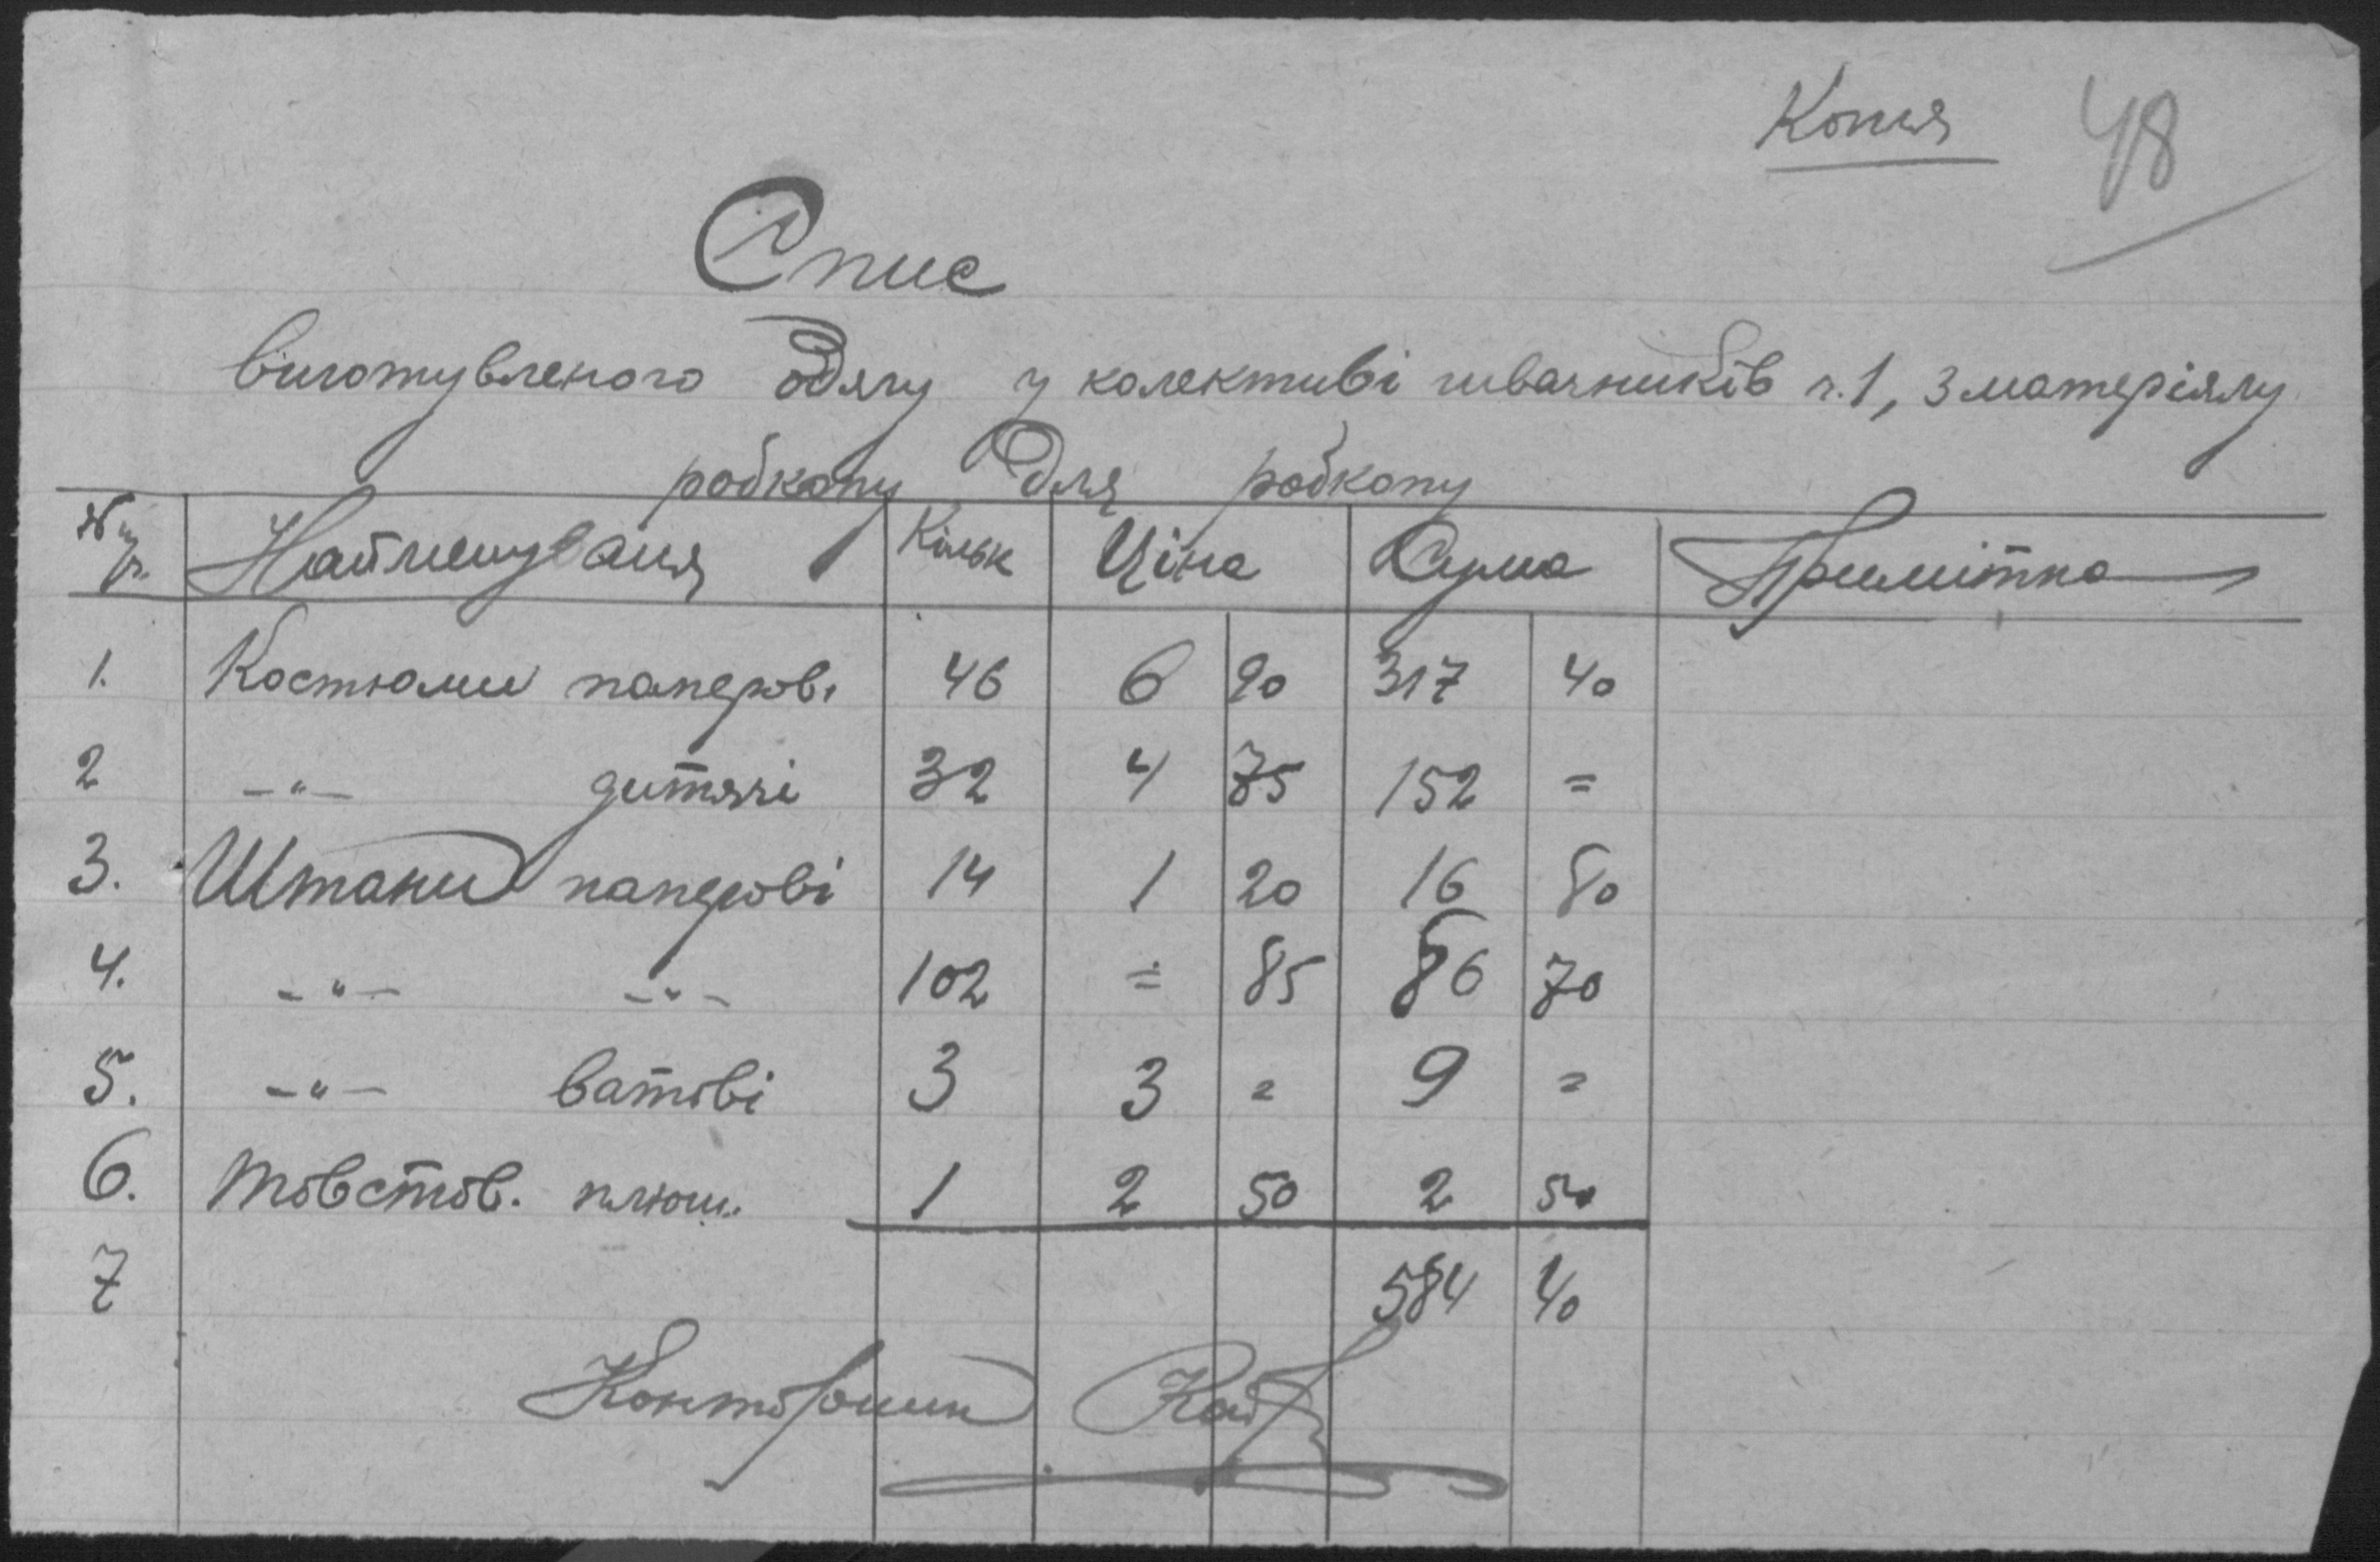 Копия 48
Спис
виготувленого одягу у колективі швачників ч.1, з матеріялу
робкопу для робкопу
№ п/р. Найменування Кільк Ціна Сума Примітка
1. Костюми паперов. 46 6 90 317 40
2 -"- дитячі 32 4 75 152 =
3. Штани паперові 14 1 20 16 80
4. -"- -"- 102 = 85 86 70
5. -"- ватові 3 3 = 9 =
6. Товстов. плюш. 1 2 50 2 50
7 584 40
Конторщик